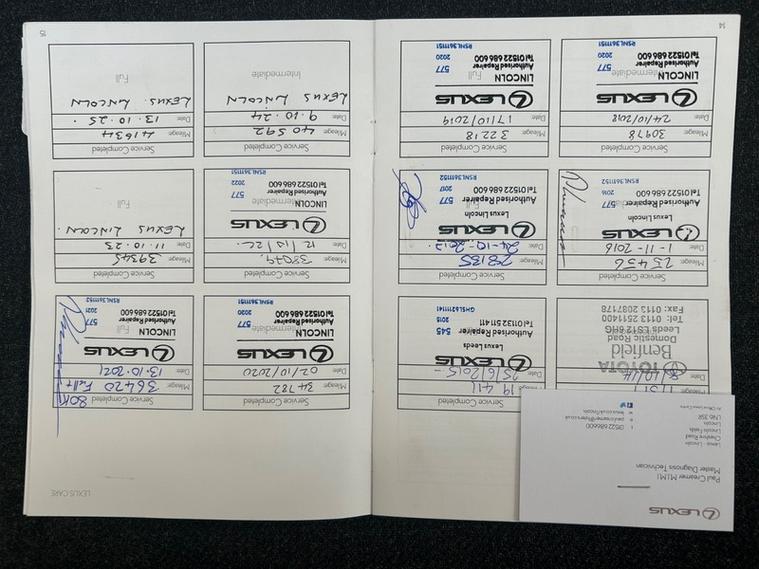 LEXUS
Paul Creamer MIMI
Master Diagnosis Technician
Lexus - Lincoln
Lincoln
LN6 3SR
01522 686600
8/10/14
TOYOTA
Benfield
Domestic Road
Leeds LS12 6HG
Tel: 0113 2511400
Fax: 0113 2087178
19 411
Date: 25/6/2015
LEXUS
Lexus Leeds
Authorised Repairer 545
Tel 01132 511 411 2015
GHSL6311141
Service Completed
Mileage: 25456
Date: 1-11-2016
LEXUS
Lexus Lincoln
Authorised Repairer 577
Tel 01522 686 600 2016
RSNL3611152
Service Completed
Mileage: 28135
Date: 24-10-2017.
LEXUS
Lexus Lincoln
Authorised Repairer 577
Tel 01522 686 600 2017
RSNL3611152
Service Completed
Mileage: 30978
Date: 24/10/2018
LEXUS
LINCOLN
Authorised Repairer 577
Tel 01522 686 600 2020
RSNL3611151
Service Completed
Mileage: 32218
Date: 17/10/2019
LEXUS
LINCOLN
Authorised Repairer 577
Tel 01522 686 600 2020
RSNL3611151
14
LEXUS CARE
Service Completed
Mileage: 34782
Date: 02/10/2020
LEXUS
LINCOLN
Authorised Repairer 577
Tel 01522 686 600 2020
RSNL3611151
Service Completed 80K
Mileage: 36420 Full+
Date: 13-10-2021
LEXUS
LINCOLN
Authorised Repairer 577
Tel 01522 686 600 2021
RSNL3611152
Service Completed
Mileage: 38079.
Date: 12/10/22.
LEXUS
LINCOLN
Authorised Repairer 577
Tel 01522 686 600 2022
RSNL3611151
Service Completed
Mileage: 39345
Date: 11.10.23
LEXUS LINCOLN.
Full
Service Completed
Mileage: 40592
Date: 9.10.24
LEXUS LINCOLN
Intermediate
Service Completed
Mileage: 41634
Date: 13.10.25.
LEXUS LINCOLN
Full
15